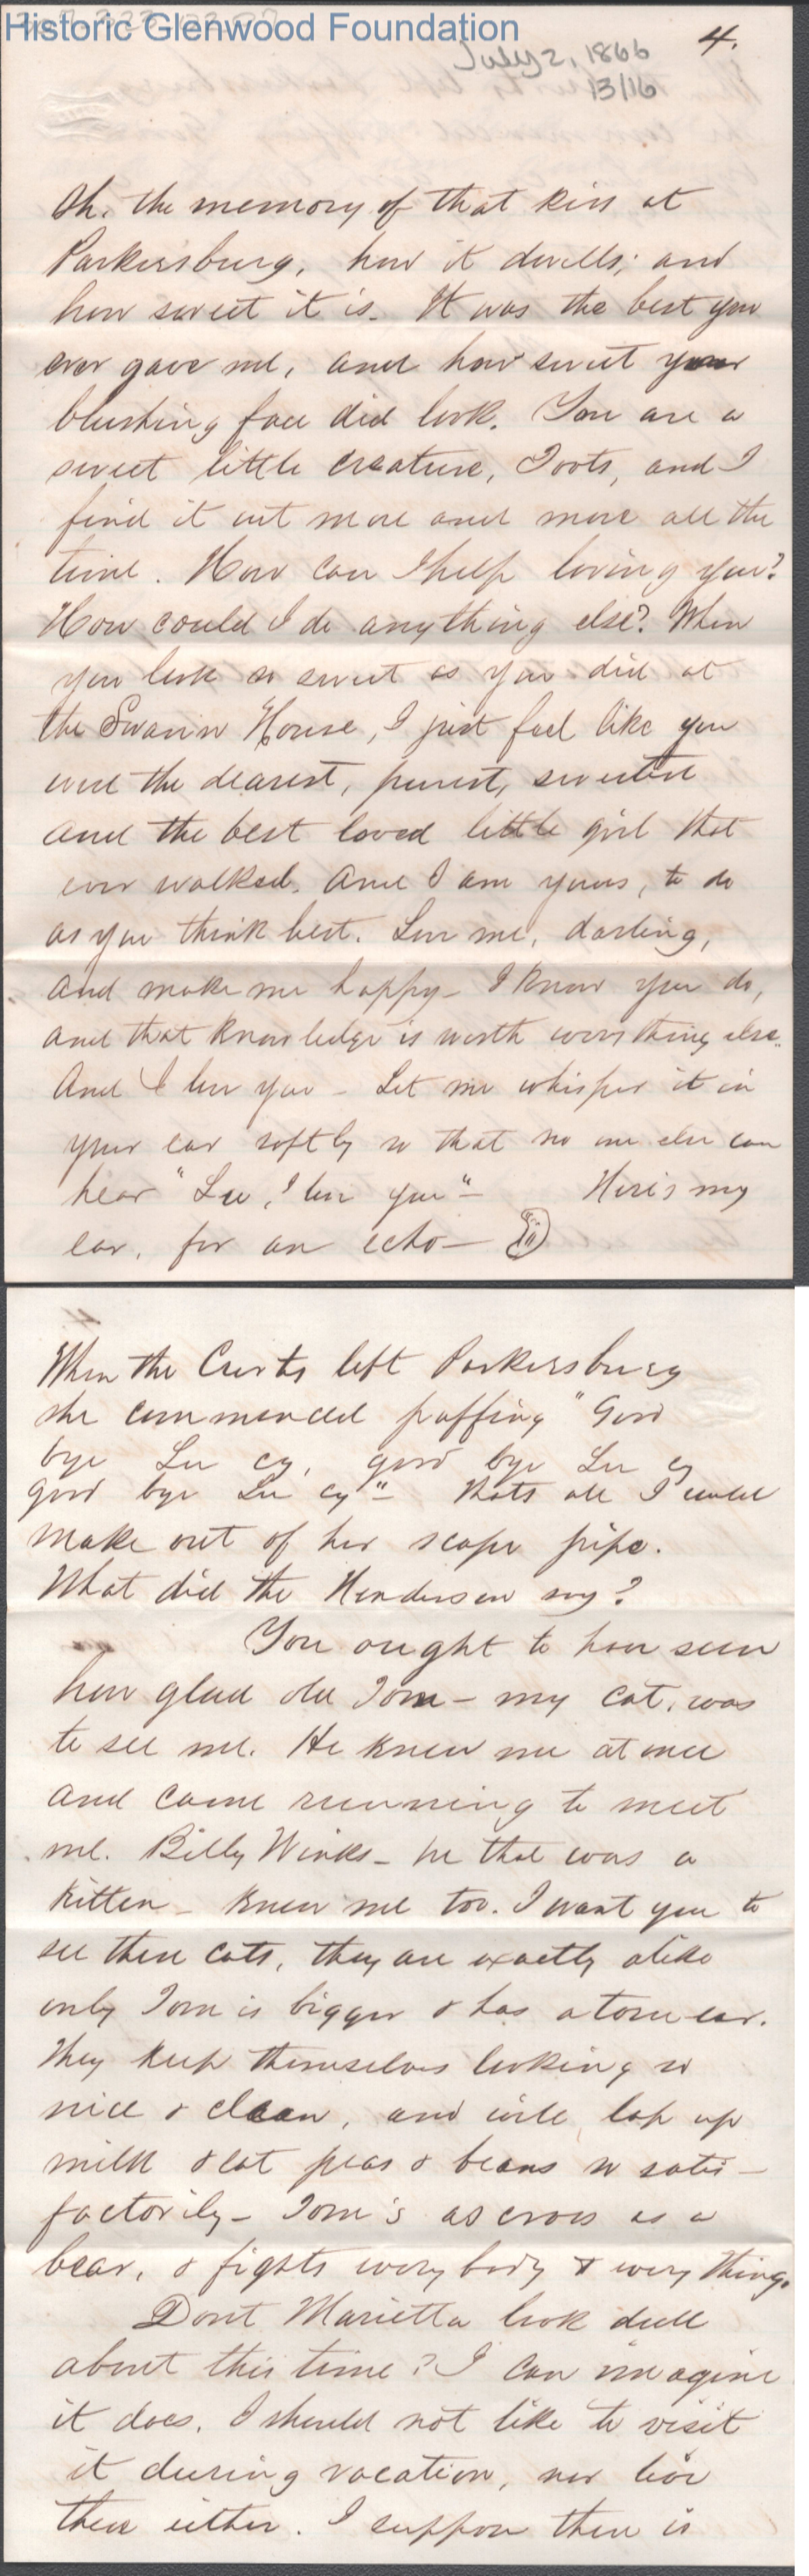 Historic Glenwood Foundation
4.
July 2, 1866
13/16
Oh, the memory of that kiss at
Parkersburg, how it dwells; and
how sweet it is. It was the best you
ever gave me, and how sweet your
blushing face did look. You are a
sweet little creature, Toots, and I
find it out more and more all the
time. How can I help loving you?
How could I do anything else? When
you look so sweet as you did at
the Swann House, I just feel like you
were the dearest, purest, sweetest
and the best loved little girl that
ever walked. And I am yours, to do
as you think best. Love me, darling,
and make me happy - I know you do,
and that knowledge is worth everything else.
And I love you - Let me whisper it in
your ear softly so that no one else can
hear "Lu, I love you" - Here's my
ear, for an echo -
When the Curtis left Parkersburg
she commenced puffing "Good
bye Lu cy, good bye Lu cy
good bye Lu cy" - Thats all I could
make out of her scape pipe.
What did the Henderson say?
You ought to have seen
how glad old Tom - my cat, was
to see me. He knew me at once
and came running to meet
me. Billy Winks - he that was a
kitten - knew me too. I want you to
see them cats, they are exactly alike
only Tom is bigger & has a torn ear.
They keep themselves looking so
nice & clean, and will lap up
milk & eat peas & beans so satis-
factorily - Tom's as cross as a
bear, & fights every body & every thing.
Dont Marietta look dull
about this time? I can imagine
it does. I should not like to visit
it during vacation, nor live
there either. I suppose there is